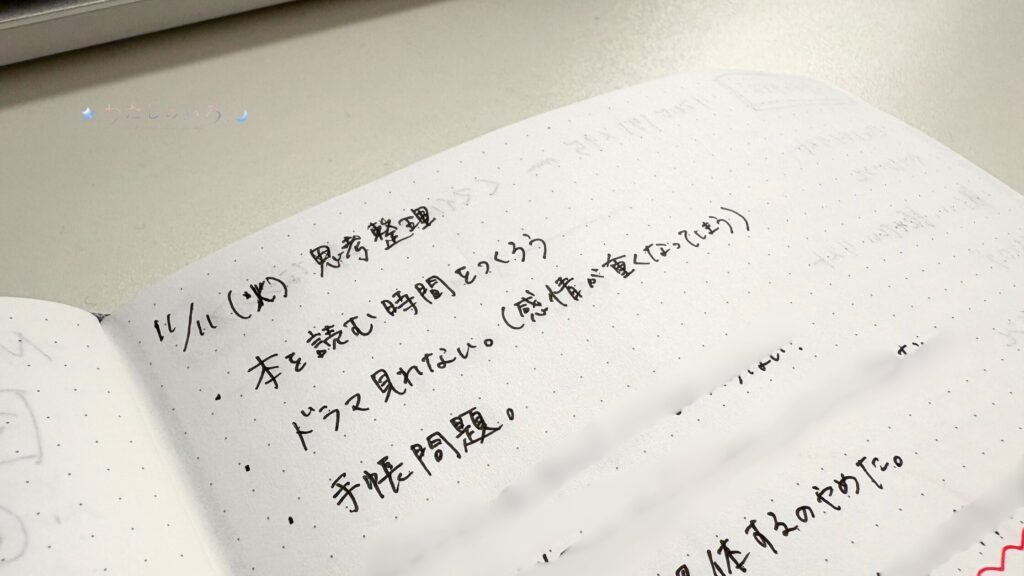 わたしのいろ
11/11(火) 思考整理
・本を読む時間をつくろう
・ドラマ見れない。(感情が重くなってしまう)
・手帳問題。
体するのやめた。